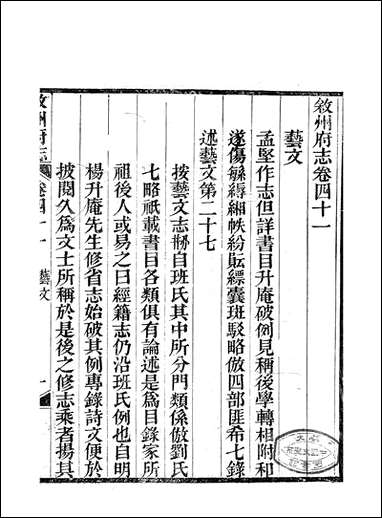 敘州府志卷四十一
藝文
孟堅作志但詳書目升庵破例見稱後學轉相附和
遂傷縟繹緗帙紛耘縹囊班駁略倣四部匪希七錄
述藝文第二十七
按藝文志昉自班氏其中所分門類係倣劉氏
七略祇載書目各類俱有論述是爲目錄家所
祖後人或易之曰經籍志仍沿班氏例也自明
楊升庵先生修省志始破其例專錄詩文便於
披閱久爲文士所稱於是後之修志乘者揚其
敘州府志
卷四十一 藝文
一